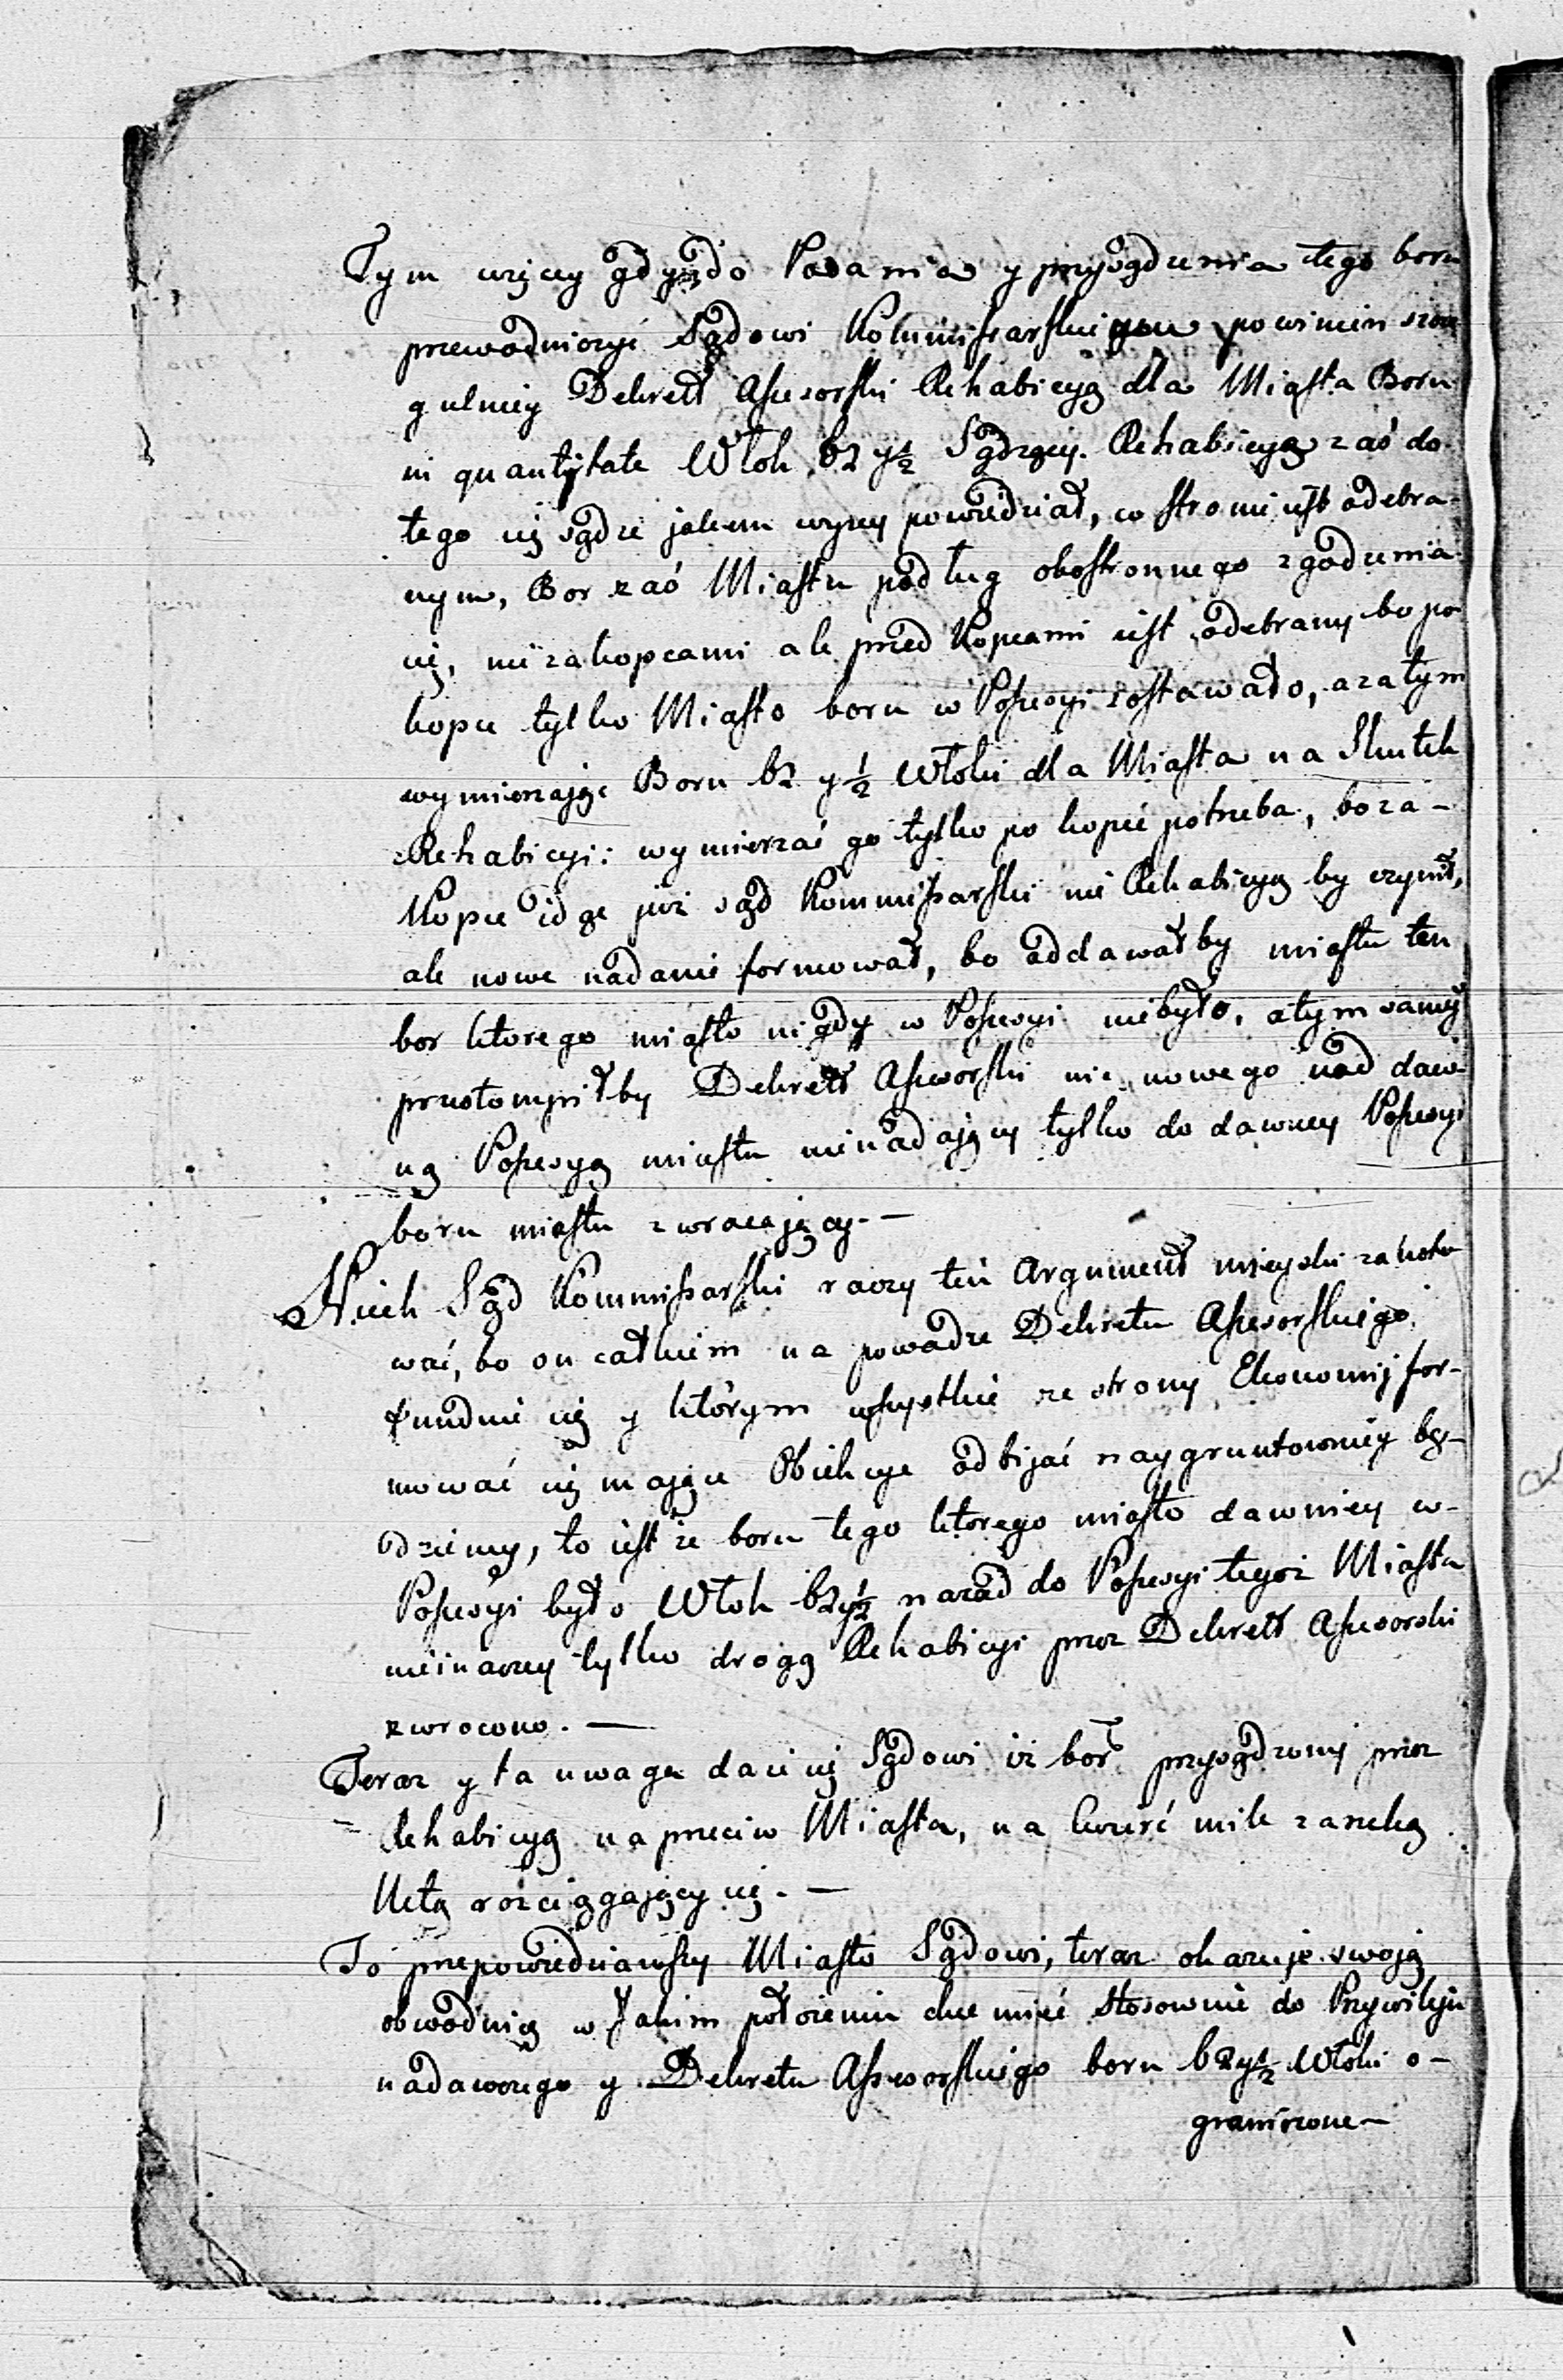 Tym więcey gdyż do Podania y przysądzenia tego boru
przewodniczyć Sądowi Kommissarskiemu powinien szcze
gulniey Dekrett Assesorski Rehabicyą dla Miasta Boru
in quantitate Włok 62 y ½ Sądzący. Rehabicya zaś do
tego się sądzi jakem wyzey powiedział, co stronie iest odebra-
nym, Bor zaś Miastu podług obostronnego zgodzenia
się, nie za kopcami ale przed Kopcami iest odebrany bo po
kopce tylko Miasto boru w Possesyi zostawało, a zatym
wymierzając Boru 62 y ½ Włoki dla Miasta na Skutek
Rehabicyi: wymierzać go tylko po kopce potrzeba, bo za-
Kopce idąc już sąd Kommissarski nie Rehabicyą by czynił,
ale nowe nadanie formował, bo oddawałby miastu ten
bor ktorego miasto nigdy w Possesyi niebyło, a tym samym
przestompiłby Dekrett Assesorski nic nowego nad daw
ną Possesyą miastu nienadający tylko do dawney Possesyi
boru miastu zwracający. —
Niech Sąd Kommissarski raczy ten Argument mieyski zanoto
wać, bo on całkiem na powadze Dekretu Assesorskiego
funduie się y którym wszystkie ze strony Ekonomij for-
mować się mające Obiekcye odbijać naygruntowniey bę-
dziemy, to iest że boru tego ktorego miasto dawniey w-
Possesyi było Włok 62 y ½ nazad do Possesyi tegoż Miasta
nieinaczey tylko drogą Rehabicyi przez Dekrett Assesorski
zwrocono. —
Teraz y ta uwaga daie się Sądowi iż bor przysądzony przez
Rehabicyą naprzeciw Miasta, na ćwierć mile za rzeką
Nettą rościągający się. —
To przepowiedziawszy Miasto Sądowi, teraz okazuje swoją
obwodnicę w jakim położeniu chce mieć stosownie do Przywileju
nadawczego y Dekretu Assesorskiego boru 62 y ½ Włoki o-
graniczone —